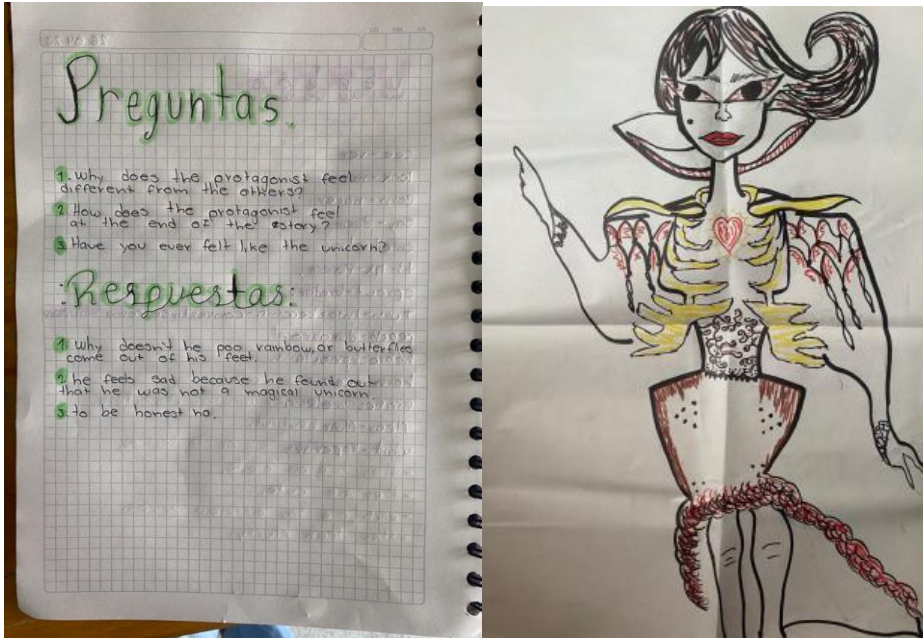 Preguntas.
1. Why does the protagonist feel
different from the others?
2. How does the protagonist feel
at the end of the story?
3. Have you ever felt like the unicorn?
Respuestas:
1. Why doesn't he poo rainbow, or butterflies
come out of his feet.
2. he feels sad because he found out
that he was not a magical unicorn.
3. to be honest no.